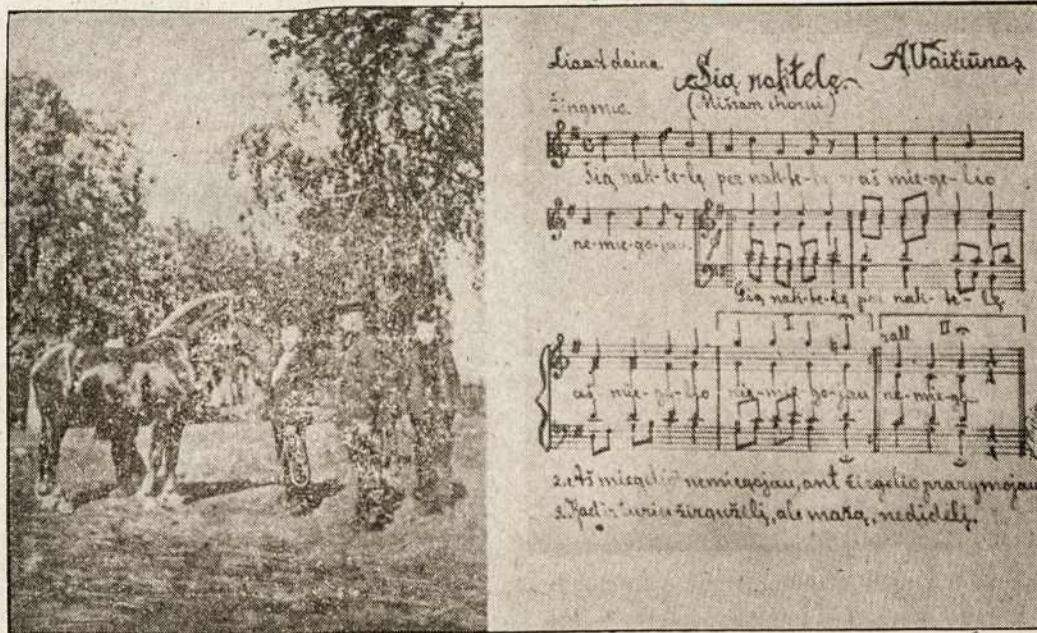 Liaud. daina. Šią naktelę. A Vaičiūnas
(Mišram chorui)
Žingsnic.
Šią nak-te-lę per nak-te-lę aš mie-ge-lio
ne-mie-go-jau.
Šią nak-te-lę per nak-te-lę
I II
rall
aš mie-ge-lio ne-mie-go-jau ne-mie-go
2. Aš miegelio nemiegojau, ant žirgelio prarymojau
3. Kad ir turiu žirguželį, ale mažą, nedidelį.